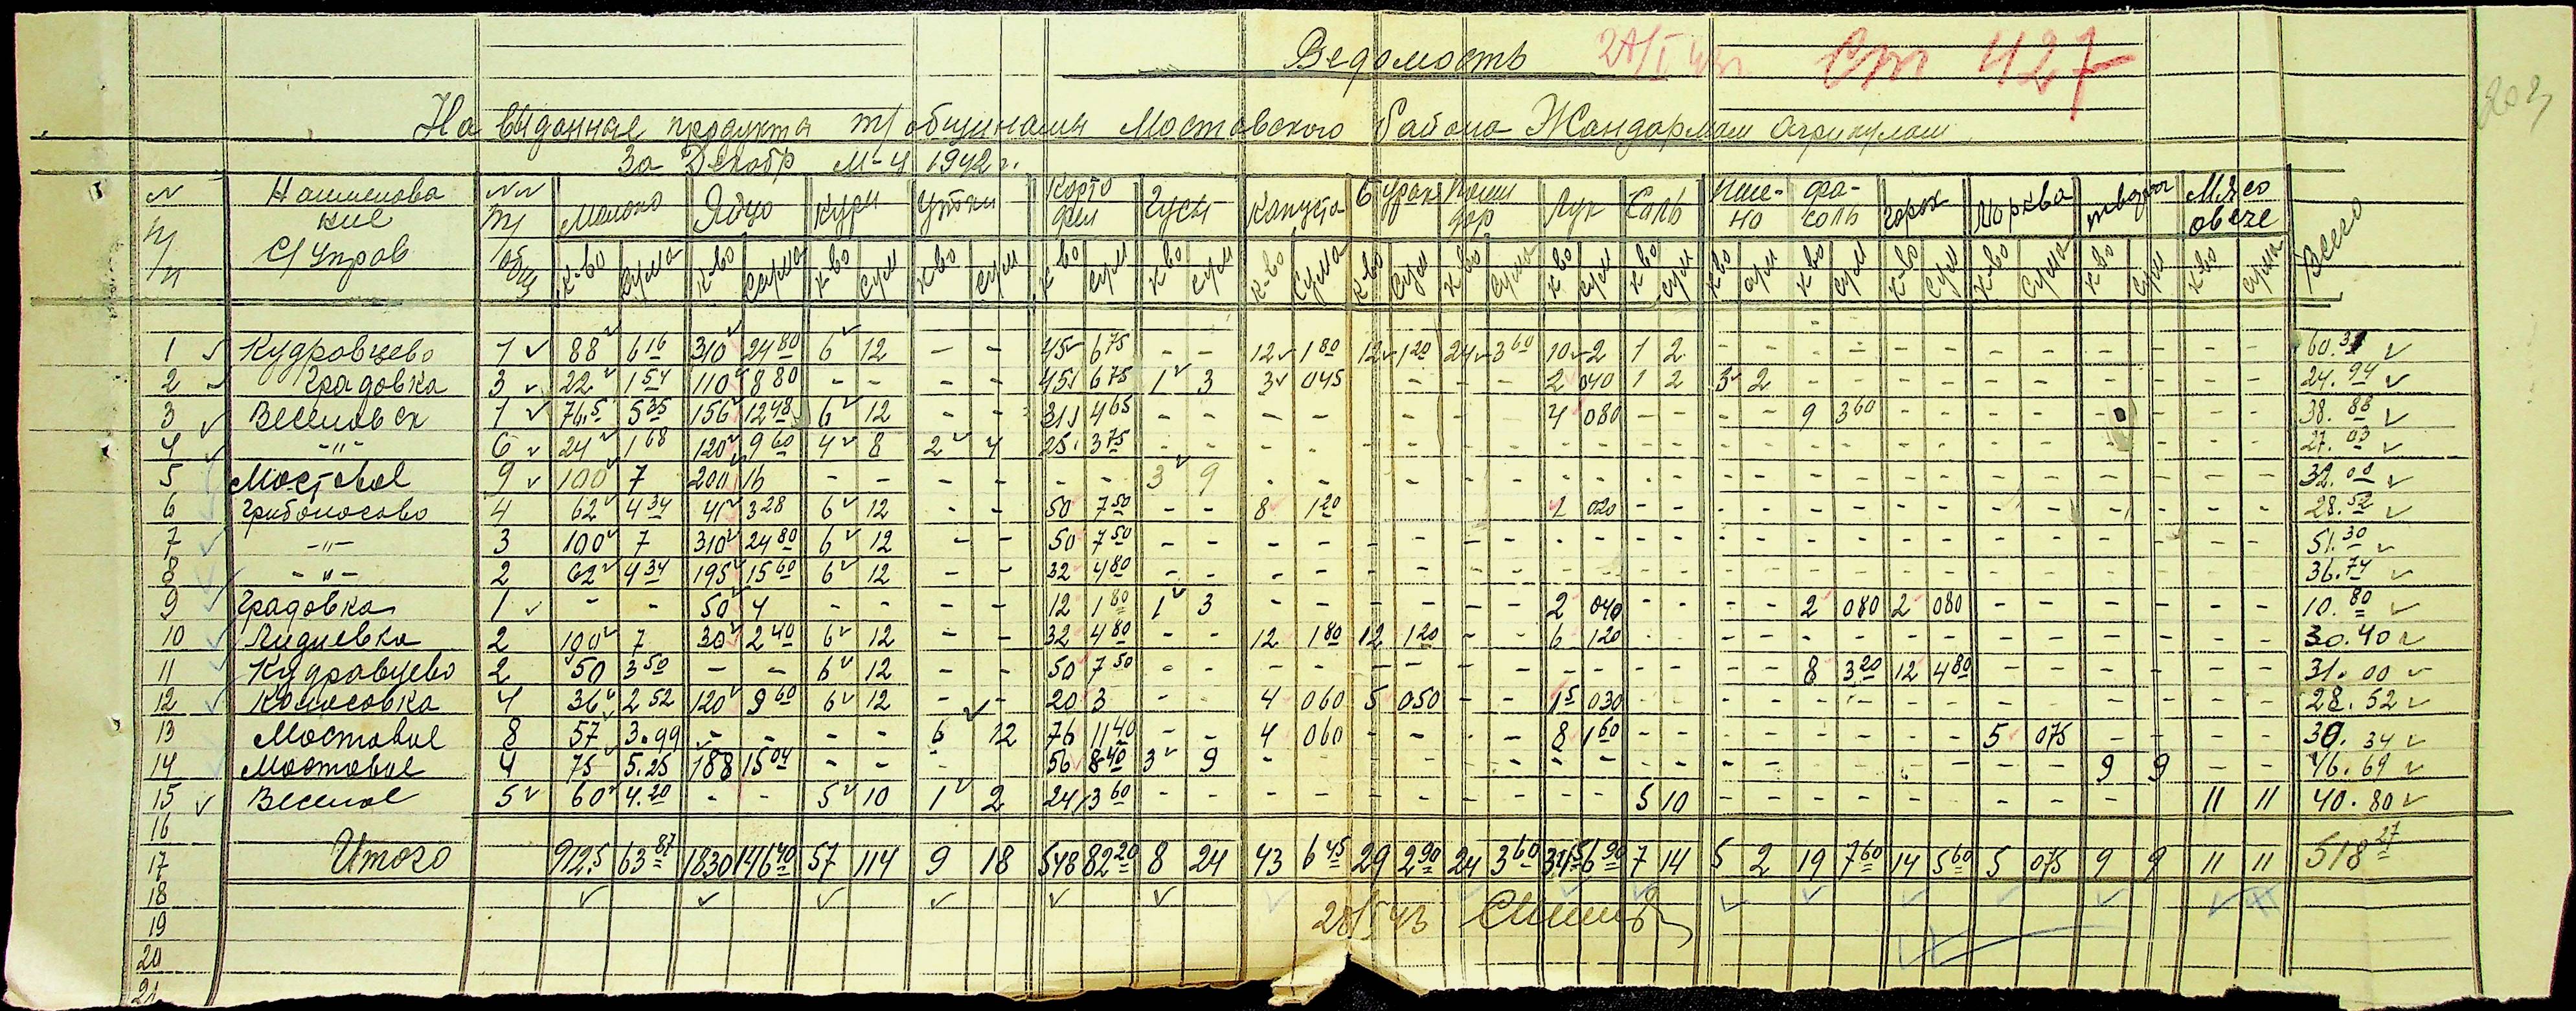 Ведомость 21/I 43г Ст 427
На выданные продукта тр/общинами Мостовского Района Жандармам Агрикулам
За Декабр М-ц 1942 г.
N п/п Наименование С/Управ NN тр/общ Молоко Яйцо Куры Утки Картофел Гусы Капуста Бурак Помидор Лук Соль Пшено Фасоль Горох Морква творог Мясо овече Всего
К-во Сума К-во Сума К-во Сум К-во Сум К-во Сум К-во Сум К-во Сума К-во Сум К-во Сума К-во Сум К-во Сум К-во Сум К-во Сум К-во Сум К-во Сума К-во Сум К-во Сума
1 Кудровцево 1 88 6 16 310 24 80 6 12 - - 45 6 75 - - 12 1 80 12 1 20 24 3 60 10 2 1 2 - - - - - - - - - - - - 60.31
2 Градовка 3 22 1 54 110 8 80 - - - - 45 6 75 1 3 3 0 45 - - - - 2 0 40 1 2 3 2 - - - - - - - - - - 24.94
3 Веселовск 1 76.5 5 35 156 12 48 6 12 - - 31 4 65 - - - - - - - - 4 0 80 - - - - 9 3 60 - - - - - - - - 38.88
4 -"- 6 24 1 68 120 9 60 4 8 2 4 25 3 75 - - - - - - - - - - - - - - - - - - - - - - - - 27.03
5 Мостовое 9 100 7 200 16 - - - - - - 3 9 - - - - - - - - - - - - - - - - - - - - - - 32.00
6 Грибоносово 4 62 4 34 41 3 28 6 12 - - 50 7 50 - - 8 1 20 1 0 20 - - - - - - - - - - - - - - 28.52
7 -"- 3 100 7 310 24 80 6 12 - - 50 7 50 - - - - - - - - - - - - - - - - - - - - - - - - 51.30
8 -"- 2 62 4 34 195 15 60 6 12 - - 32 4 80 - - - - - - - - - - - - - - - - - - - - - - - - 36.74
9 Градовка 1 - - 50 4 - - - - 12 1 80 1 3 - - - - - - 2 0 40 - - - - 2 0 80 2 0 80 - - - - - - 10.80
10 Лидиевка 2 100 7 30 2 40 6 12 - - 32 4 80 - - 12 1 80 12 1 20 - - 6 1 20 - - - - - - - - - - - - - - 30.40
11 Кудравцево 2 50 3 50 - - 6 12 - - 50 7 50 - - - - - - - - - - - - - - 8 3 20 12 4 80 - - - - - - 31.00
12 Колосовка 4 36 2 52 120 9 60 6 12 - - 20 3 - - 4 0 60 5 0 50 - - 1 5 0 30 - - - - - - - - - - - - - - 28.52
13 Мостовое 8 57 3.99 - - - - 6 12 76 11 40 - - 4 0 60 - - - - 8 1 60 - - - - - - - - 5 0 75 - - - - 30.34
14 Мостовое 4 75 5.25 188 15 04 - - - 56 8 40 3 9 - - - - - - - - - - - - - - - - - - 9 9 - - 46.69
15 Веселое 5 60 4.20 - - 5 10 1 2 24 3 60 - - - - - - - - - - 5 10 - - - - - - - - - - 11 11 40.80
16
17 Итого 912.5 63 87 1830 146 40 57 114 9 18 548 82 20 8 24 43 6 45 29 2 90 24 3 60 34 5 6 90 7 14 5 2 19 7 60 14 5 60 5 0 75 9 9 11 11 518 27
18
19 20/I 43
20
21